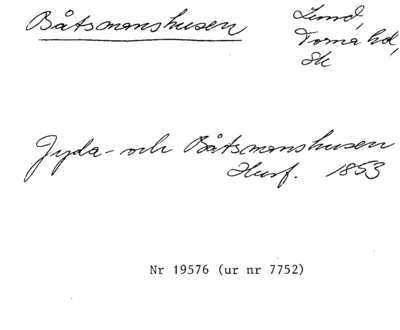 Båtsmanshusen
Lund,
Torna hd,
Sk
Jyda- och Båtsmanshusen
Husf. 1853
Nr 19576 (ur nr 7752)